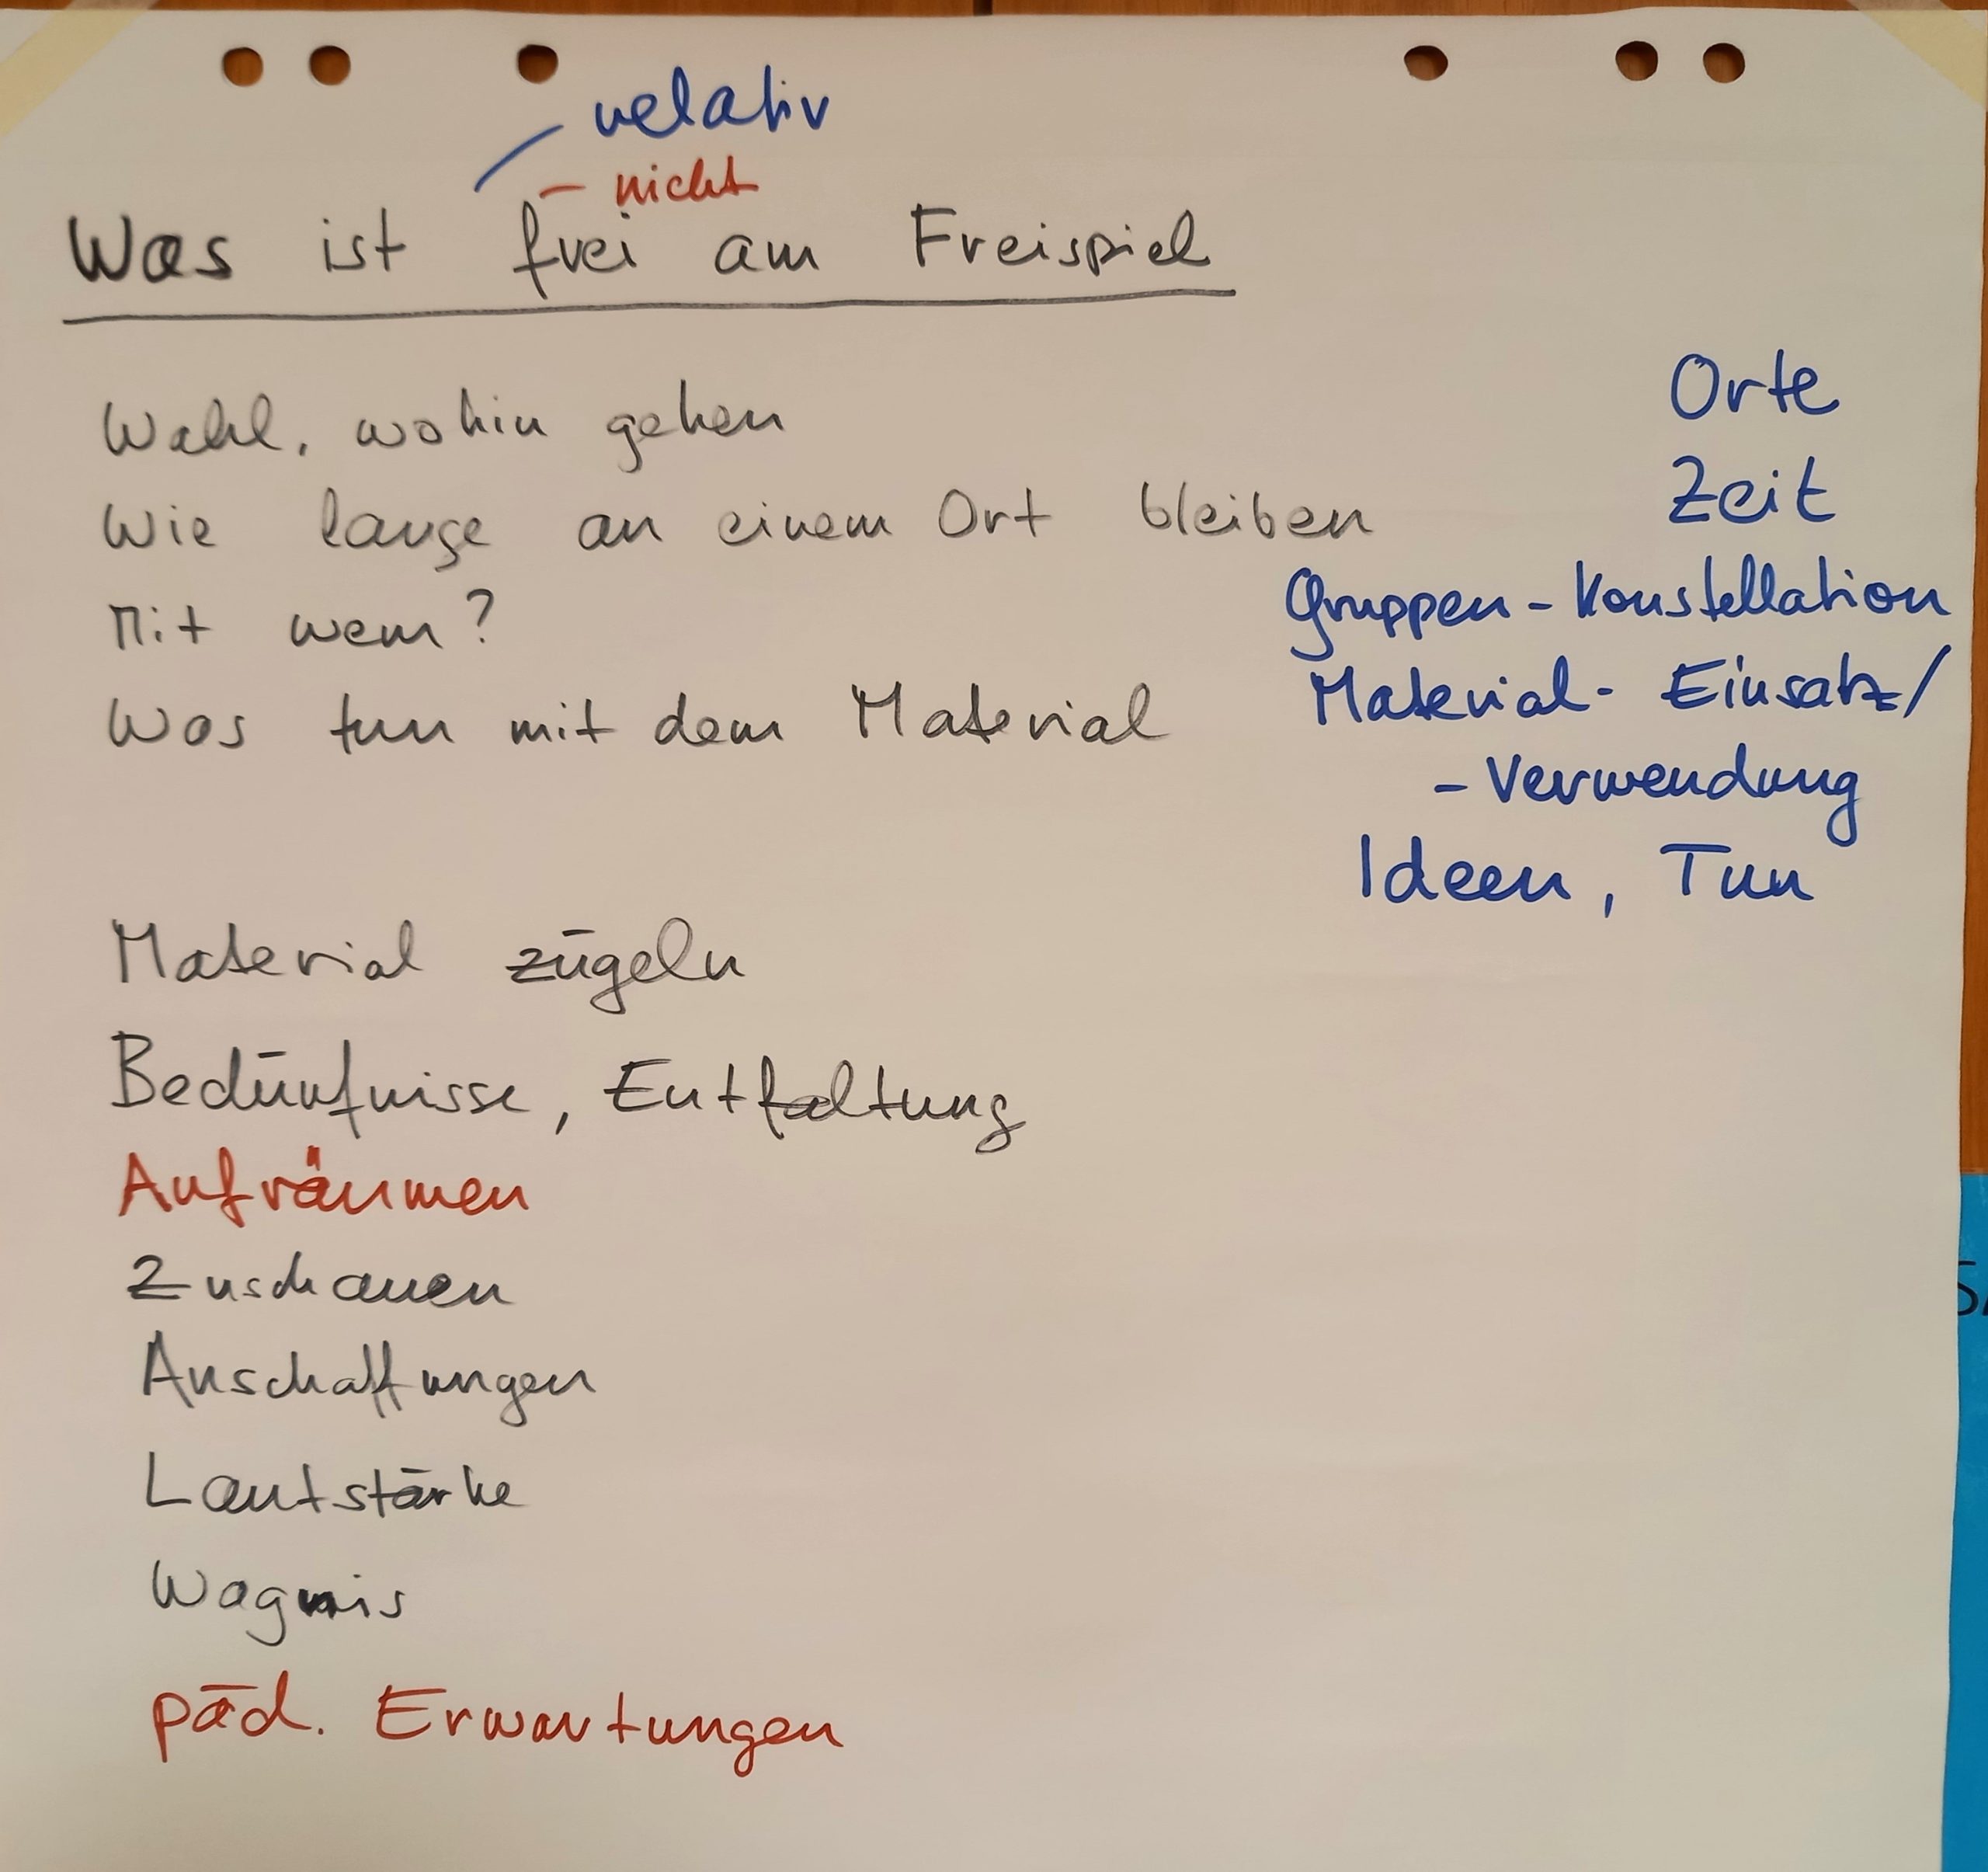 relativ
- nicht
Was ist frei am Freispiel
Wahl, wohin gehen
Orte
Wie lange an einem Ort bleiben
Zeit
Mit wem?
Gruppen-Konstellation
Was tun mit dem Material
Material- Einsatz/
- Verwendung
Ideen, Tun
Material zügeln
Bedürfnisse, Entfaltung
Aufräumen
Zuschauen
Anschaffungen
Lautstärke
Wagnis
päd. Erwartungen